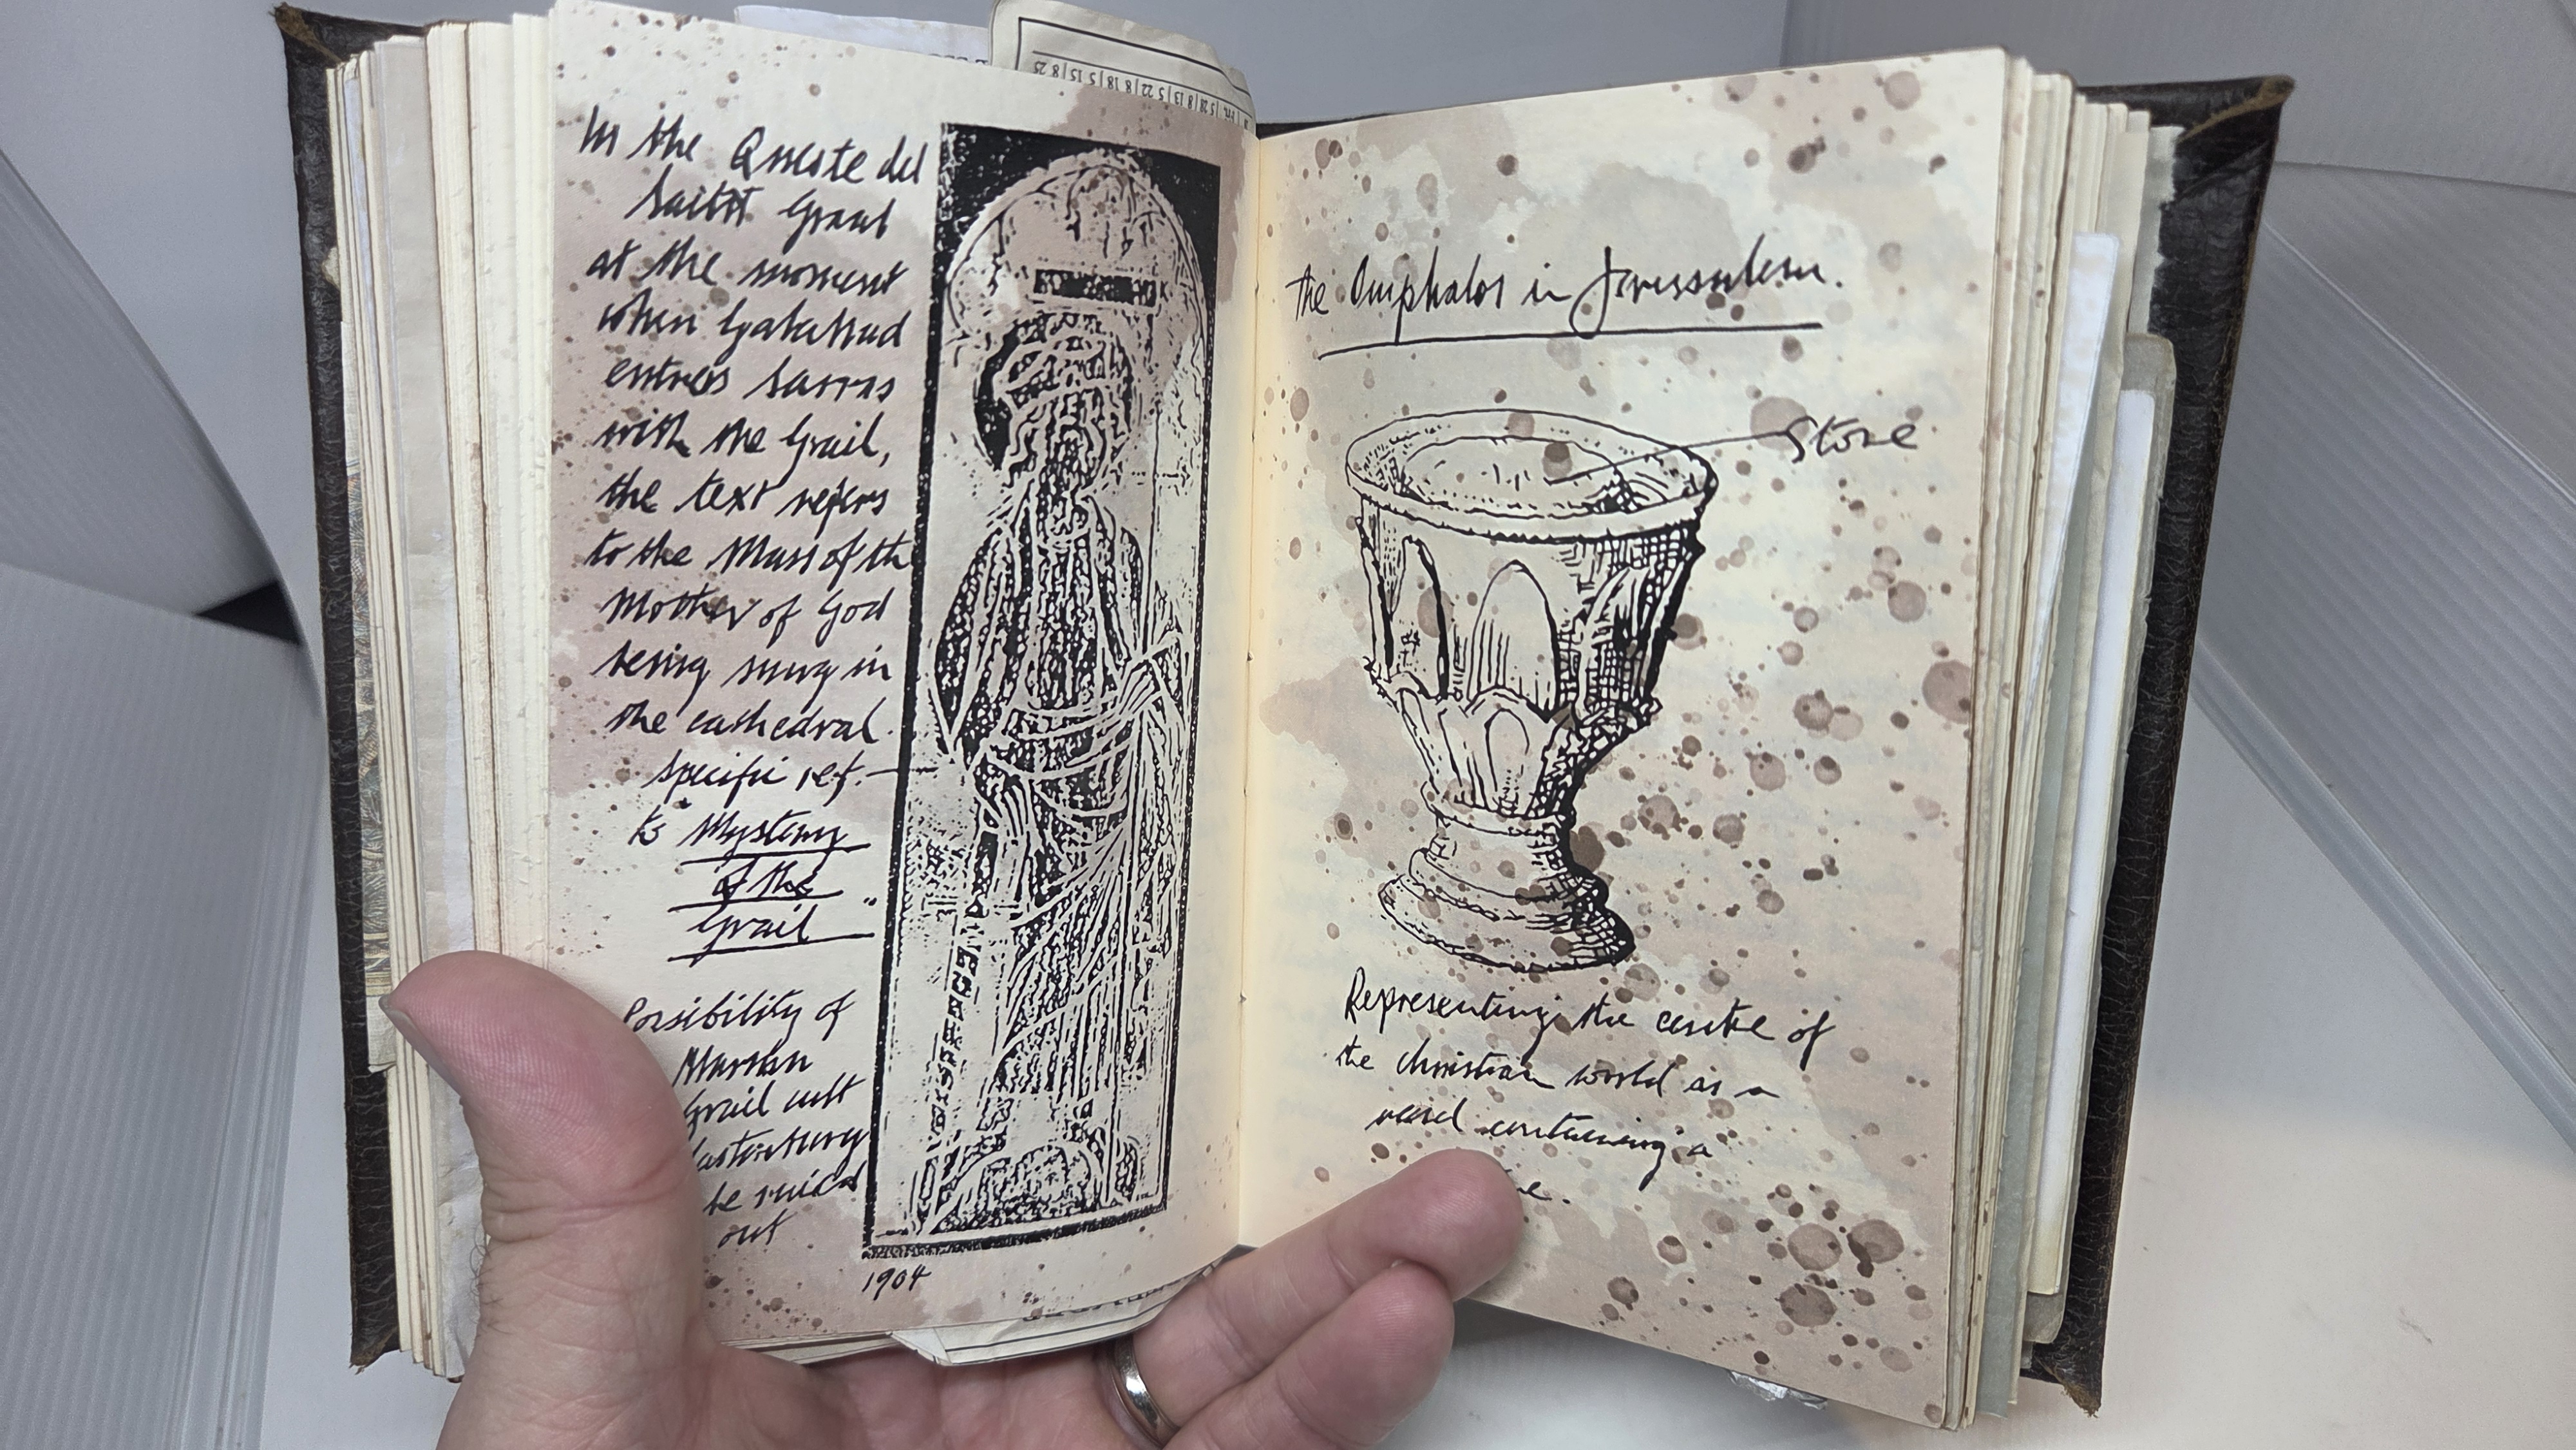 In the Queste del
Saint Graal
at the moment
when Galahad
enters Sarras
with the Grail,
the text refers
to the Mass of the
Mother of God
being sung in
the cathedral.
specific ref.
to Mystery
of the
Grail
Possibility of
Marian
Grail cult
be ruled
out
1904
the Omphalos in Jerusalem.
Stone
Representing the centre of
the christian world as a
vessel containing a